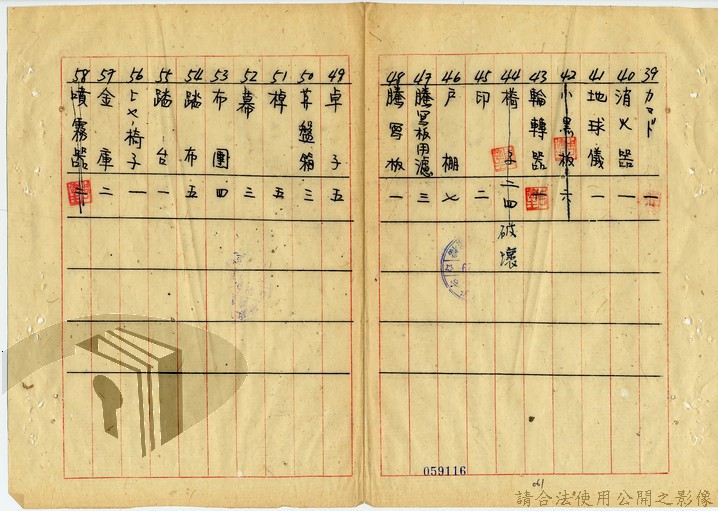 39 カマド 一
40 消火器 一
41 地球儀 一
42 小黑板 六
43 輪轉器
44 椅子 二四破壞
45 印 二
46 戸棚 七
47 騰写板用濾 三
48 騰写板 一
49 卓子 五
50 盤箱 三
51 棹 五
52 幕 三
53 布團 四
54 踏布 五
55 踏台 一
56 椅子 一
57 金庫 二
58 噴霧器 二
059116
061
請合法使用公開之影像